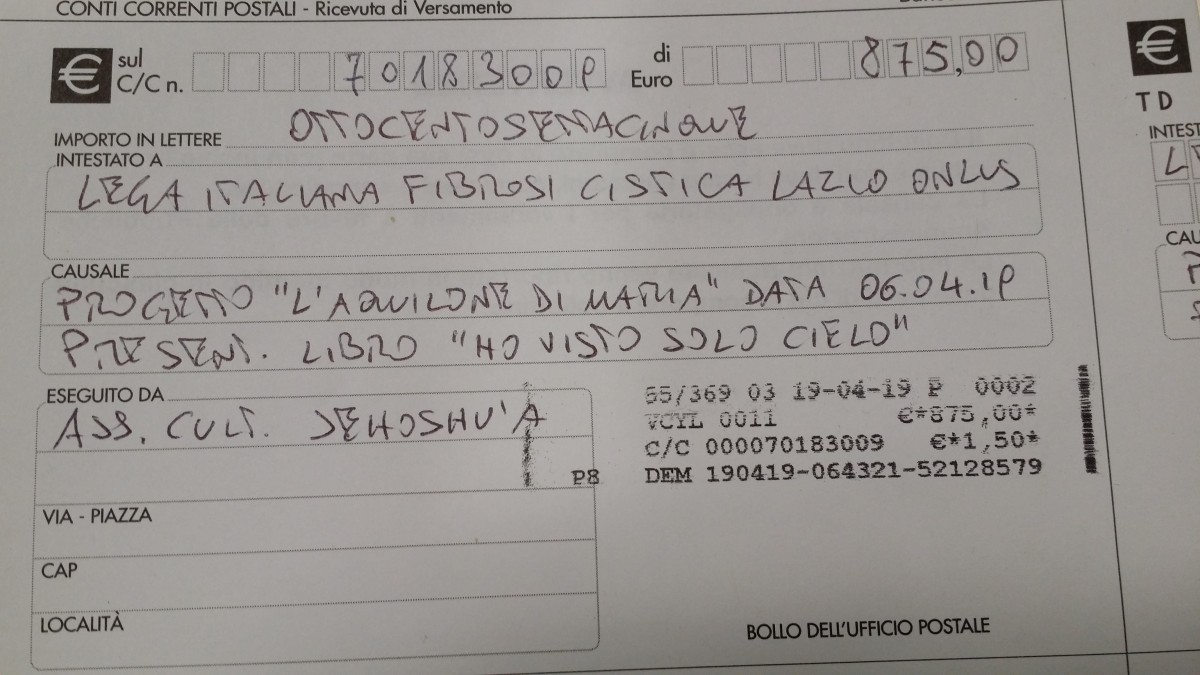 CONTI CORRENTI POSTALI - Ricevuta di Versamento
€ sul C/C n. 70183009 di Euro 875,00
TD
IMPORTO IN LETTERE OTTOCENTOSETTACINQUE
INTESTATO A
LEGA ITALIANA FIBROSI CISTICA LAZIO ONLUS
CAUSALE
PROGETTO "L'AQUILONE DI MARIA" DATA 06.04.19
PRESENT. LIBRO "HO VISTO SOLO CIELO"
ESEGUITO DA
ASS. CULT. JEHOSHU'A
55/369 03 19-04-19 P 0002
VCYL 0011 €*875,00*
C/C 000070183009 €*1,50*
P8 DEM 190419-064321-52128579
VIA - PIAZZA
CAP
LOCALITÀ
BOLLO DELL'UFFICIO POSTALE